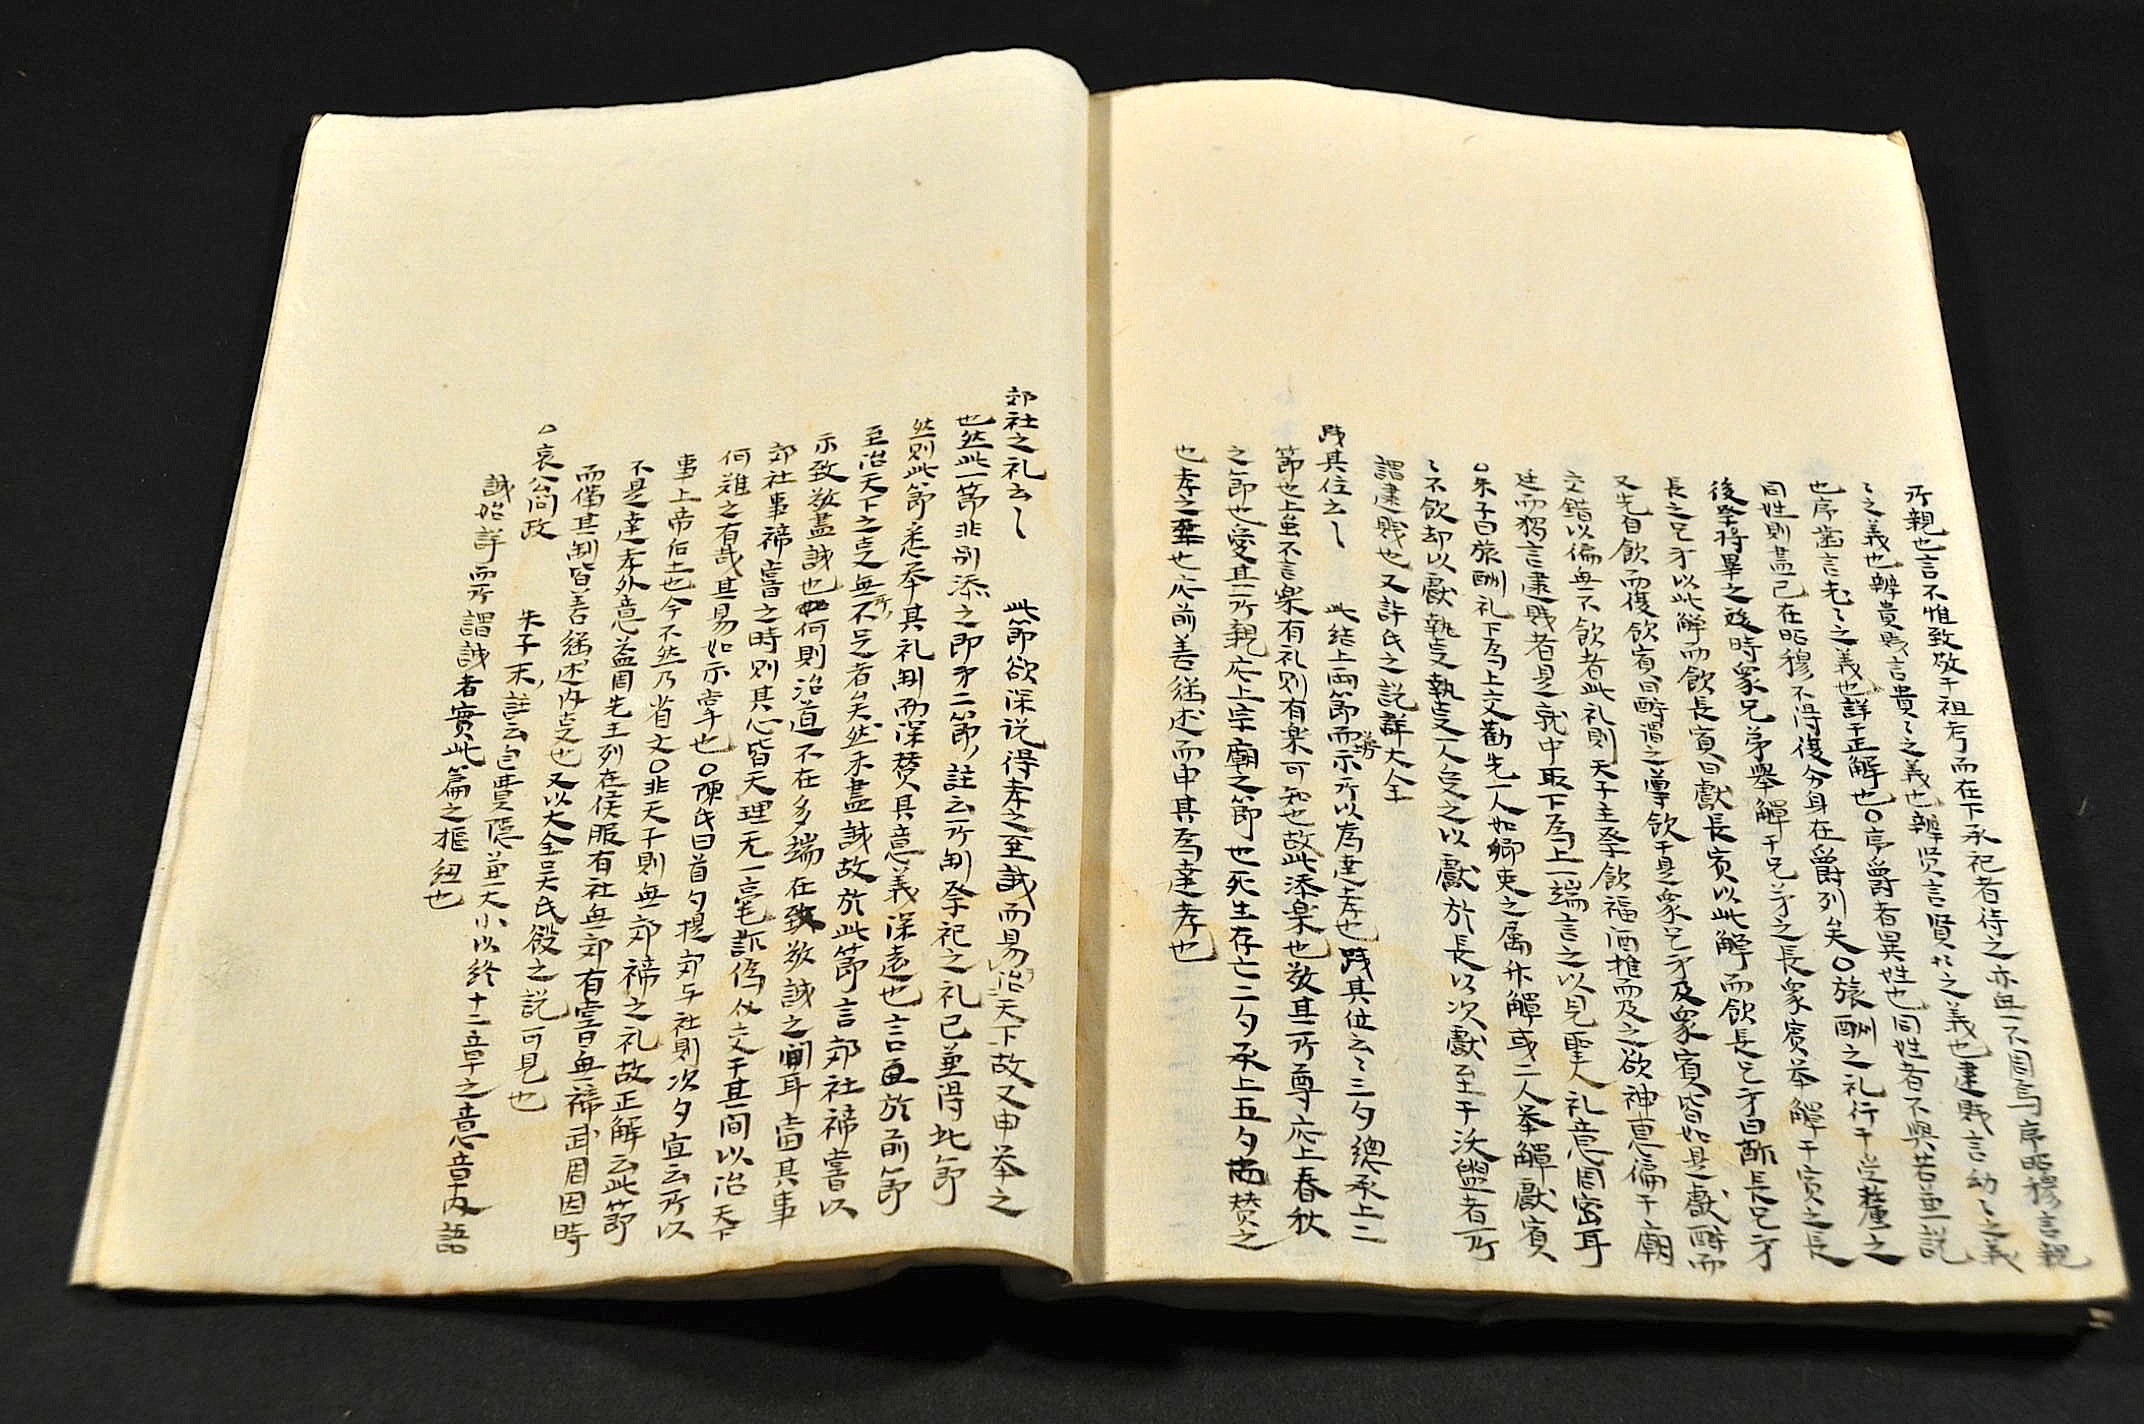 所親也言不惟致敬于祖考而在下承祀者待之亦無不周焉序昭穆言親
〻之義也辨貴賎言貴〻之義也辨贤言賢〻之義也逮賎言幼〻之義
也序歯言老〻之義也詳于正解也○序爵者異姓也同姓者不與若並説
同姓則盡己在昭穆不得復分身在爵列矣○旅酬之礼行于堂釐之
後祭将畢之後時衆兄弟舉觶于兄弟之長衆賓举觶于賓之長
長之兄弟以此觶而飲長賓曰獻長賓以此觶而飲長兄弟曰酢長兄弟
又先自飲而復飲賓曰酬謂之導飲于是衆兄弟及衆賓皆如是獻酬而
交錯以徧無不飲者此礼則天子主祭飲福酒推而及之欲神恵徧于廟
廷而獨言逮賎者是就中取下為上一端言之以見聖人礼意周密耳
○朱子曰旅酬礼下為上交勸先一人如郷吏之属升觶或二人举觶獻賓
〻不飲却以獻執事執事一人受之以獻於長以次獻至于沃盥者所
謂逮賎也又許氏之説詳大全
践其位云〻 此結上両節而示所以為達孝也践其位云〻三句總承上二
節也上虽不言楽有礼則有楽可知也故此添楽也敬其所尊応上春秋
之節也愛其所親応上宗廟之節也死生存亡二句承上五句而賛之
也孝之至也応前善継述而申其為達孝也
郊社之礼云〻 此節欲深説得孝之至誠而易治天下故又申举之
也然此一節非别添之即第二節註云所制祭祀之礼已並得此節
然則此節悉奉其礼制而深賛其意義深遠也言重於前節
至治天下之事無所不足者矣然未盡誠故於此節言郊社禘嘗以
示致敬盡誠也如何則治道不在多端在致敬誠之間耳當其事
郊社事禘嘗之時則其心皆天理无一毫詐偽伩交于其間以治天下
何難之有哉其易如示掌也○陳氏曰首句提郊与社則次句宜云所以
事上帝后土也今不然乃省文○非天子則無郊禘之礼故正解云此節
不是達孝外意盖周先王列在侯服有社無郊有嘗無禘武周因時
而備其制皆善継述内事也又以大全吴氏役之説可見也
○哀公問政 朱子末註云包費隠並大小以終十二章之意章内語
誠始詳而所謂誠者實此篇之樞紐也